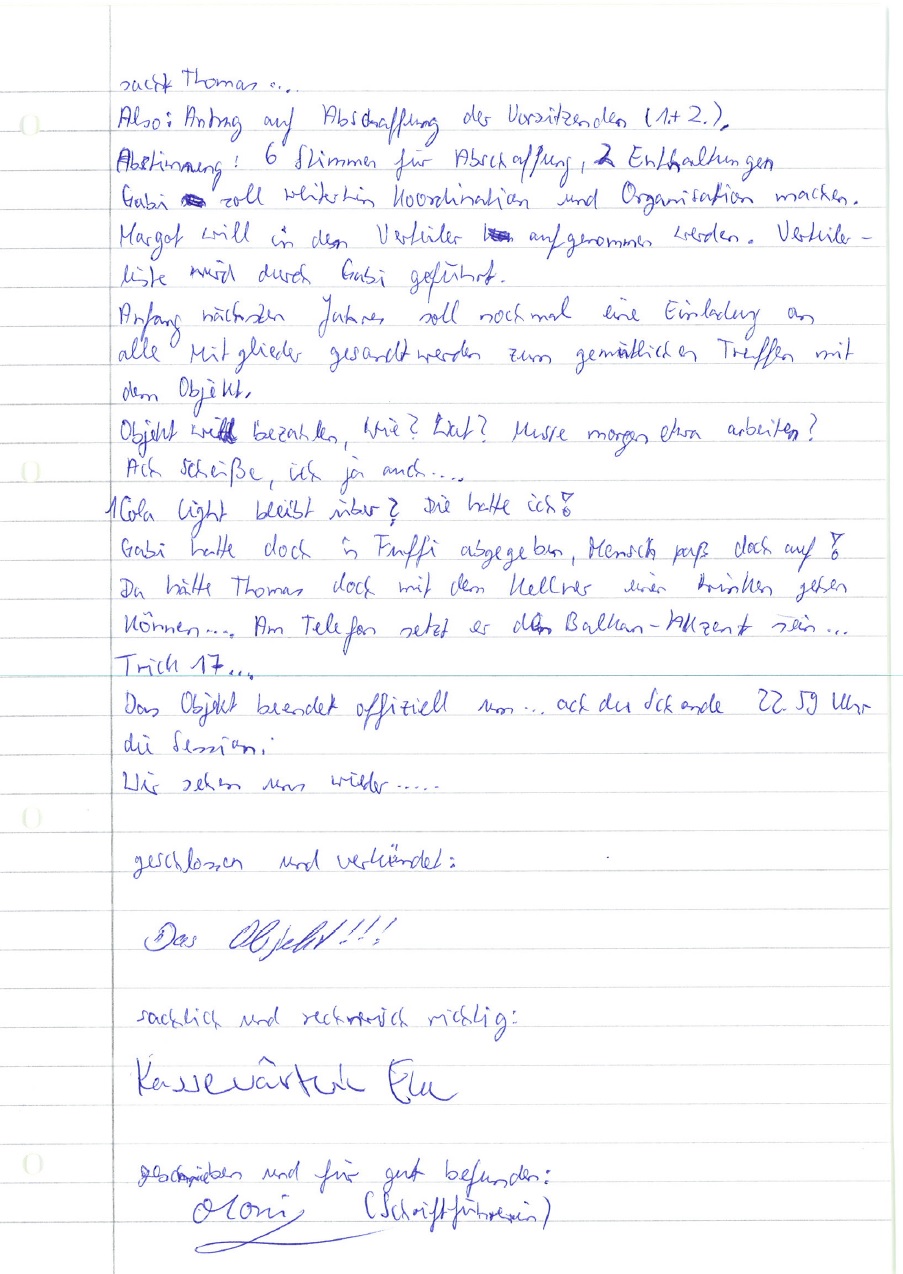 sacht Thomas ...
Also: Antrag auf Abschaffung der Vorsitzenden (1.+ 2.).
Abstimmung: 6 Stimmen für Abschaffung, 2 Enthaltungen
Gabi soll weiterhin Koordination und Organisation machen.
Margot will in den Verteiler aufgenommen werden. Verteiler-
liste wird durch Gabi geführt.
Anfang nächsten Jahres soll nochmal eine Einladung an
alle Mitglieder gesandt werden zum gemütlichen Treffen mit
dem Objekt.
Objekt will bezahlen, Wie? Wat? Musse morgen etwa arbeiten?
Ach scheiße, ich ja auch....
1 Cola light bleibt über? Die hatte ich!
Gabi hatte doch 'n Fuffi abgegeben, Mensch paß doch auf!
Da hätte Thomas doch mit dem Kellner einen trinken gehen
können.... Am Telefon setzt er den Balkan-Akzent ein...
Trick 17...
Das Objekt beendet offiziell um... ach du Schande 22.59 Uhr
die Session.
Wir sehen uns wieder.....
geschlossen und verkündet:
Das Objekt!!!
sachlich und rechnerisch richtig:
Kassewärtin
geschrieben und für gut befunden:
(Schriftführerin)